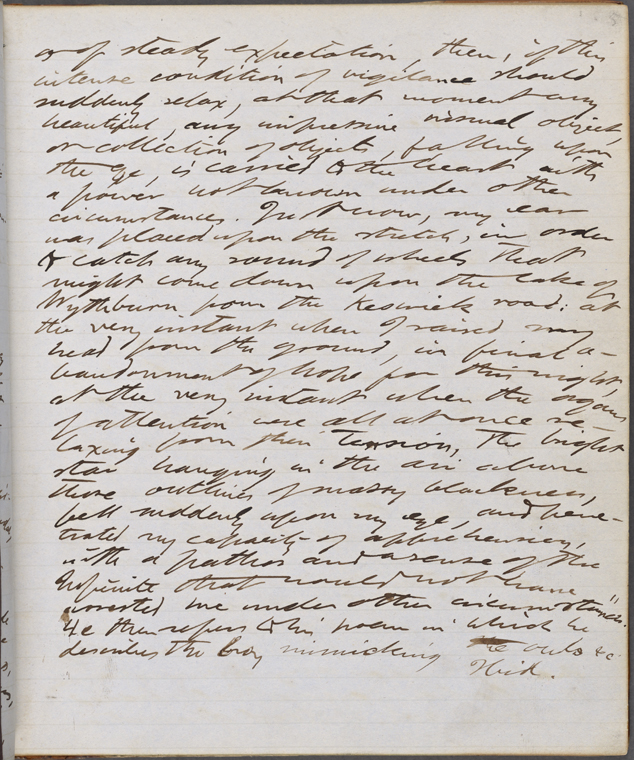 or of steady expectation, then, if this
intense condition of vigilance should
suddenly relax, at that moment any
beautiful, any impressive visual object,
or collection of objects, falling upon
the eye, is carried to the heart with
a power not known under other
circumstances. Just now, my ear
was placed upon the stretch, in order
to catch any sound of wheels that
might come down upon the lake of
Wythburn from the Keswick road: at
the very instant when I raised my
head from the ground, in final a-
bandonment of hope for this night,
at the very instant when the organs
of attention were all at once re-
laxing from their tension, the bright
star hanging in the air above
those outlines of massy blackness,
fell suddenly upon my eye, and pene-
trated my capacity of apprehension,
with a pathos and a sense of the
Infinite that would not have
arrested me under other circumstances."
He then refers to his poem in which he
describes the boy mimicking the owls &c
Ibid.